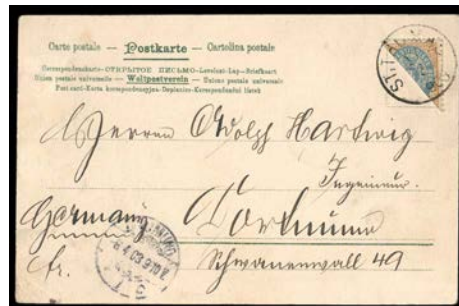 Carte postale — Postkarte — Cartolina postale
Korrespondenzkarte-ОТКРЫТОЕ ПИСЬМО-Levelezö-Lap-Brefkort
Union postale universelle — Weltpostverein — Unione postale universale
Post card-Karta korespondencyjna-Dopisnice-Korespondenční lístek
Herrn Adolf Hartwig
Ingenieur.
Germany Dortmund
fr. Schwanenwall 49
6.4.03.9-10 V
ST. T